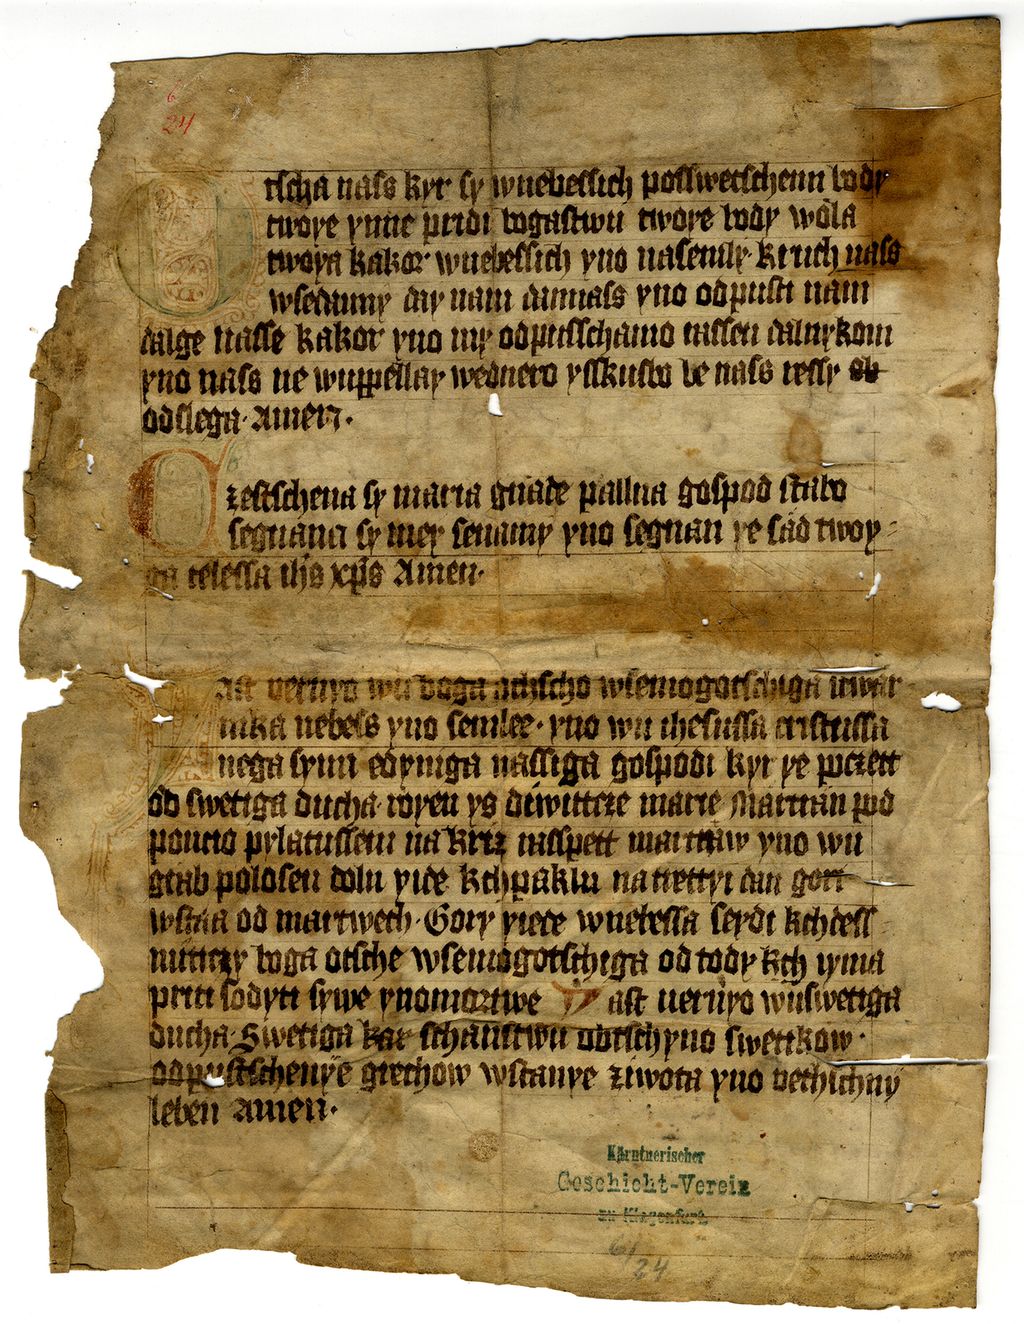 6
24
Otscha nass kyr sy wnebessich posswetschenu body
twoye yme pridi bogastwu twoye body wola
twoya kakor wnebessich yno nasemly kruch nass
wsedanny day nam dannass yno odpusti nam
dalge nasse kakor yno my odpusschamo nassen dalnykom
yno nass ne wuppellay wednero ysskusbo le nass ressy ob
odslega amen
Czestschena sy maria gnade pallna gospod stabo
segnana sy mey senamy yno segnan ye sad twoy
ga telessa ihs xps Amen
Jast veruyo wu boga otscho wsemogotschiga stwar
nika nebess yno semlee yno wu ihesussa cristussa
nega synu edyniga nassiga gospodi kyr ye poczett
od swetiga ducha royen ys diwittcze marie Martran pod
poncio pylatussem na kriz rasspett martraw yno wu
grab polosen dolu yide kchpaklu na trettyi dan gori
wstaa od martwech Gory yiede wnebessa seydi kchdess
niticzy boga otsche wsemogotschiga od tody kch yma
priti sodyti sywe ynomoztwe Jast veruyo wuswetiga
ducha Swetiga karschanstwu obtsch yno swettkow
odpustschenye grechow wstanye ziwota yno vethichny
leben Amen
Kärntnerischer
Geschicht-Verein
zu Klagenfurt
6/
24